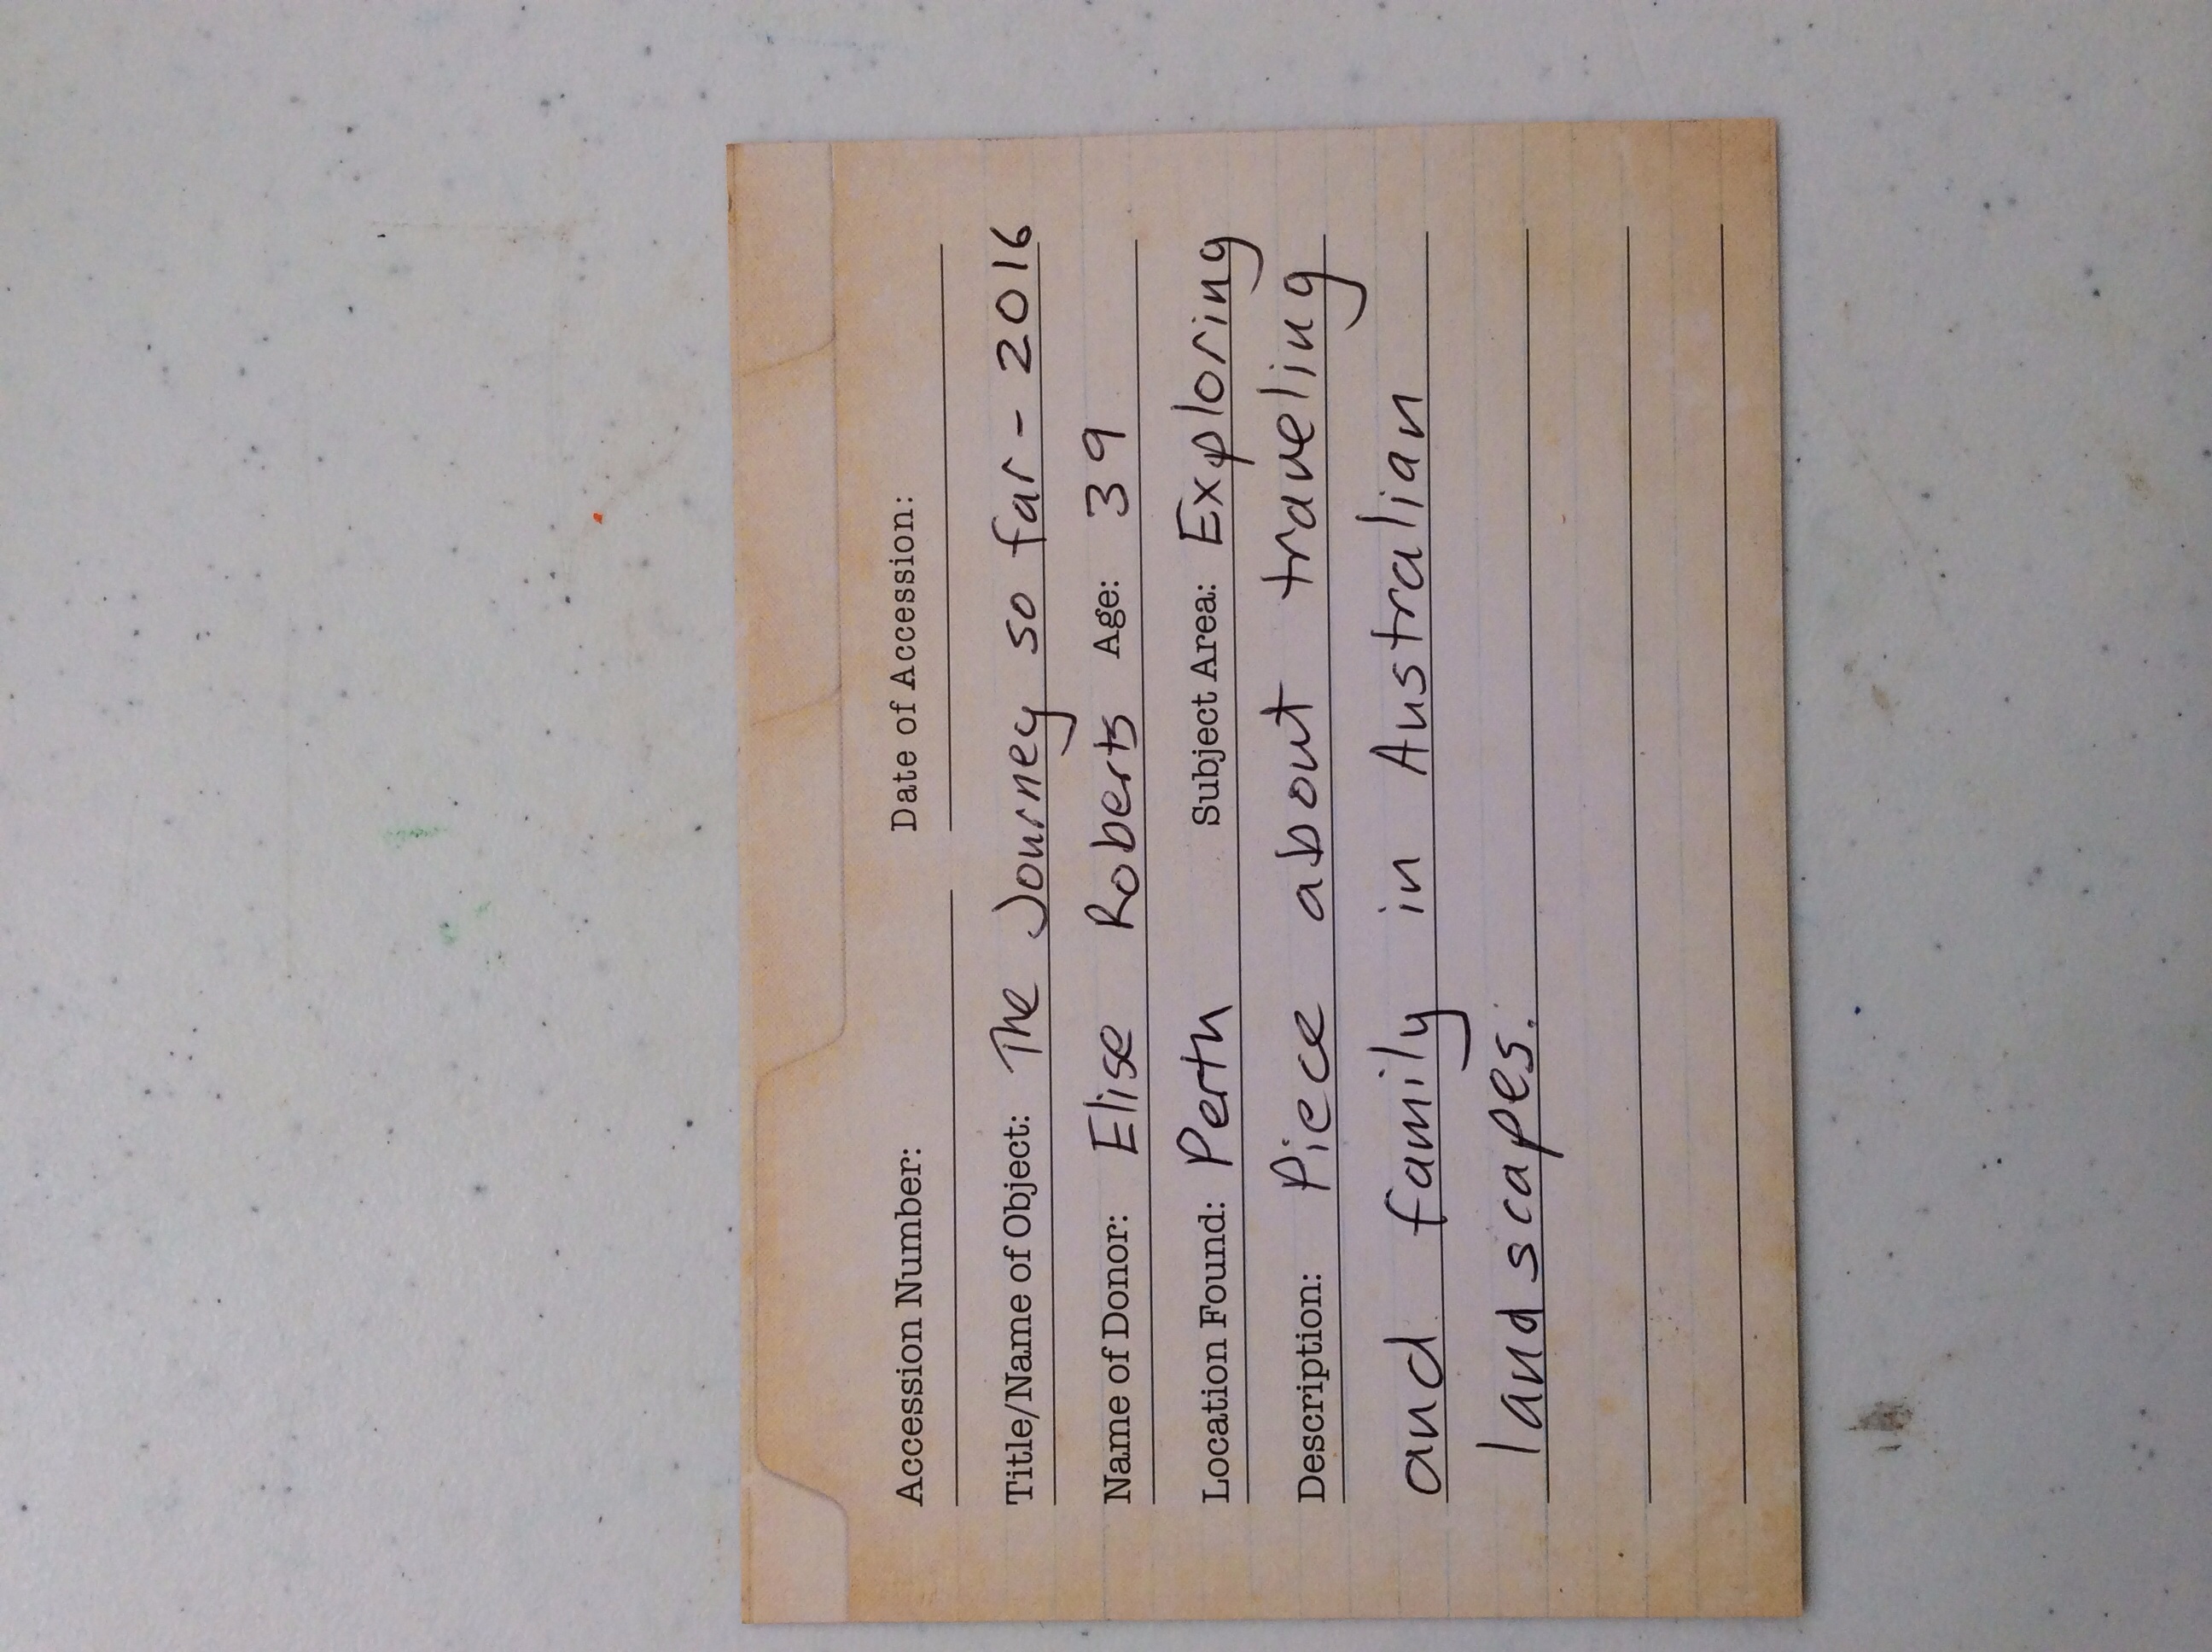 Accession Number: Date of Accession:
Title/Name of Object: The Journey so far - 2016
Name of Donor: Elise Roberts Age: 39
Location Found: Perth Subject Area: Exploring
Description: Piece about traveling
and family in Australian
landscapes.